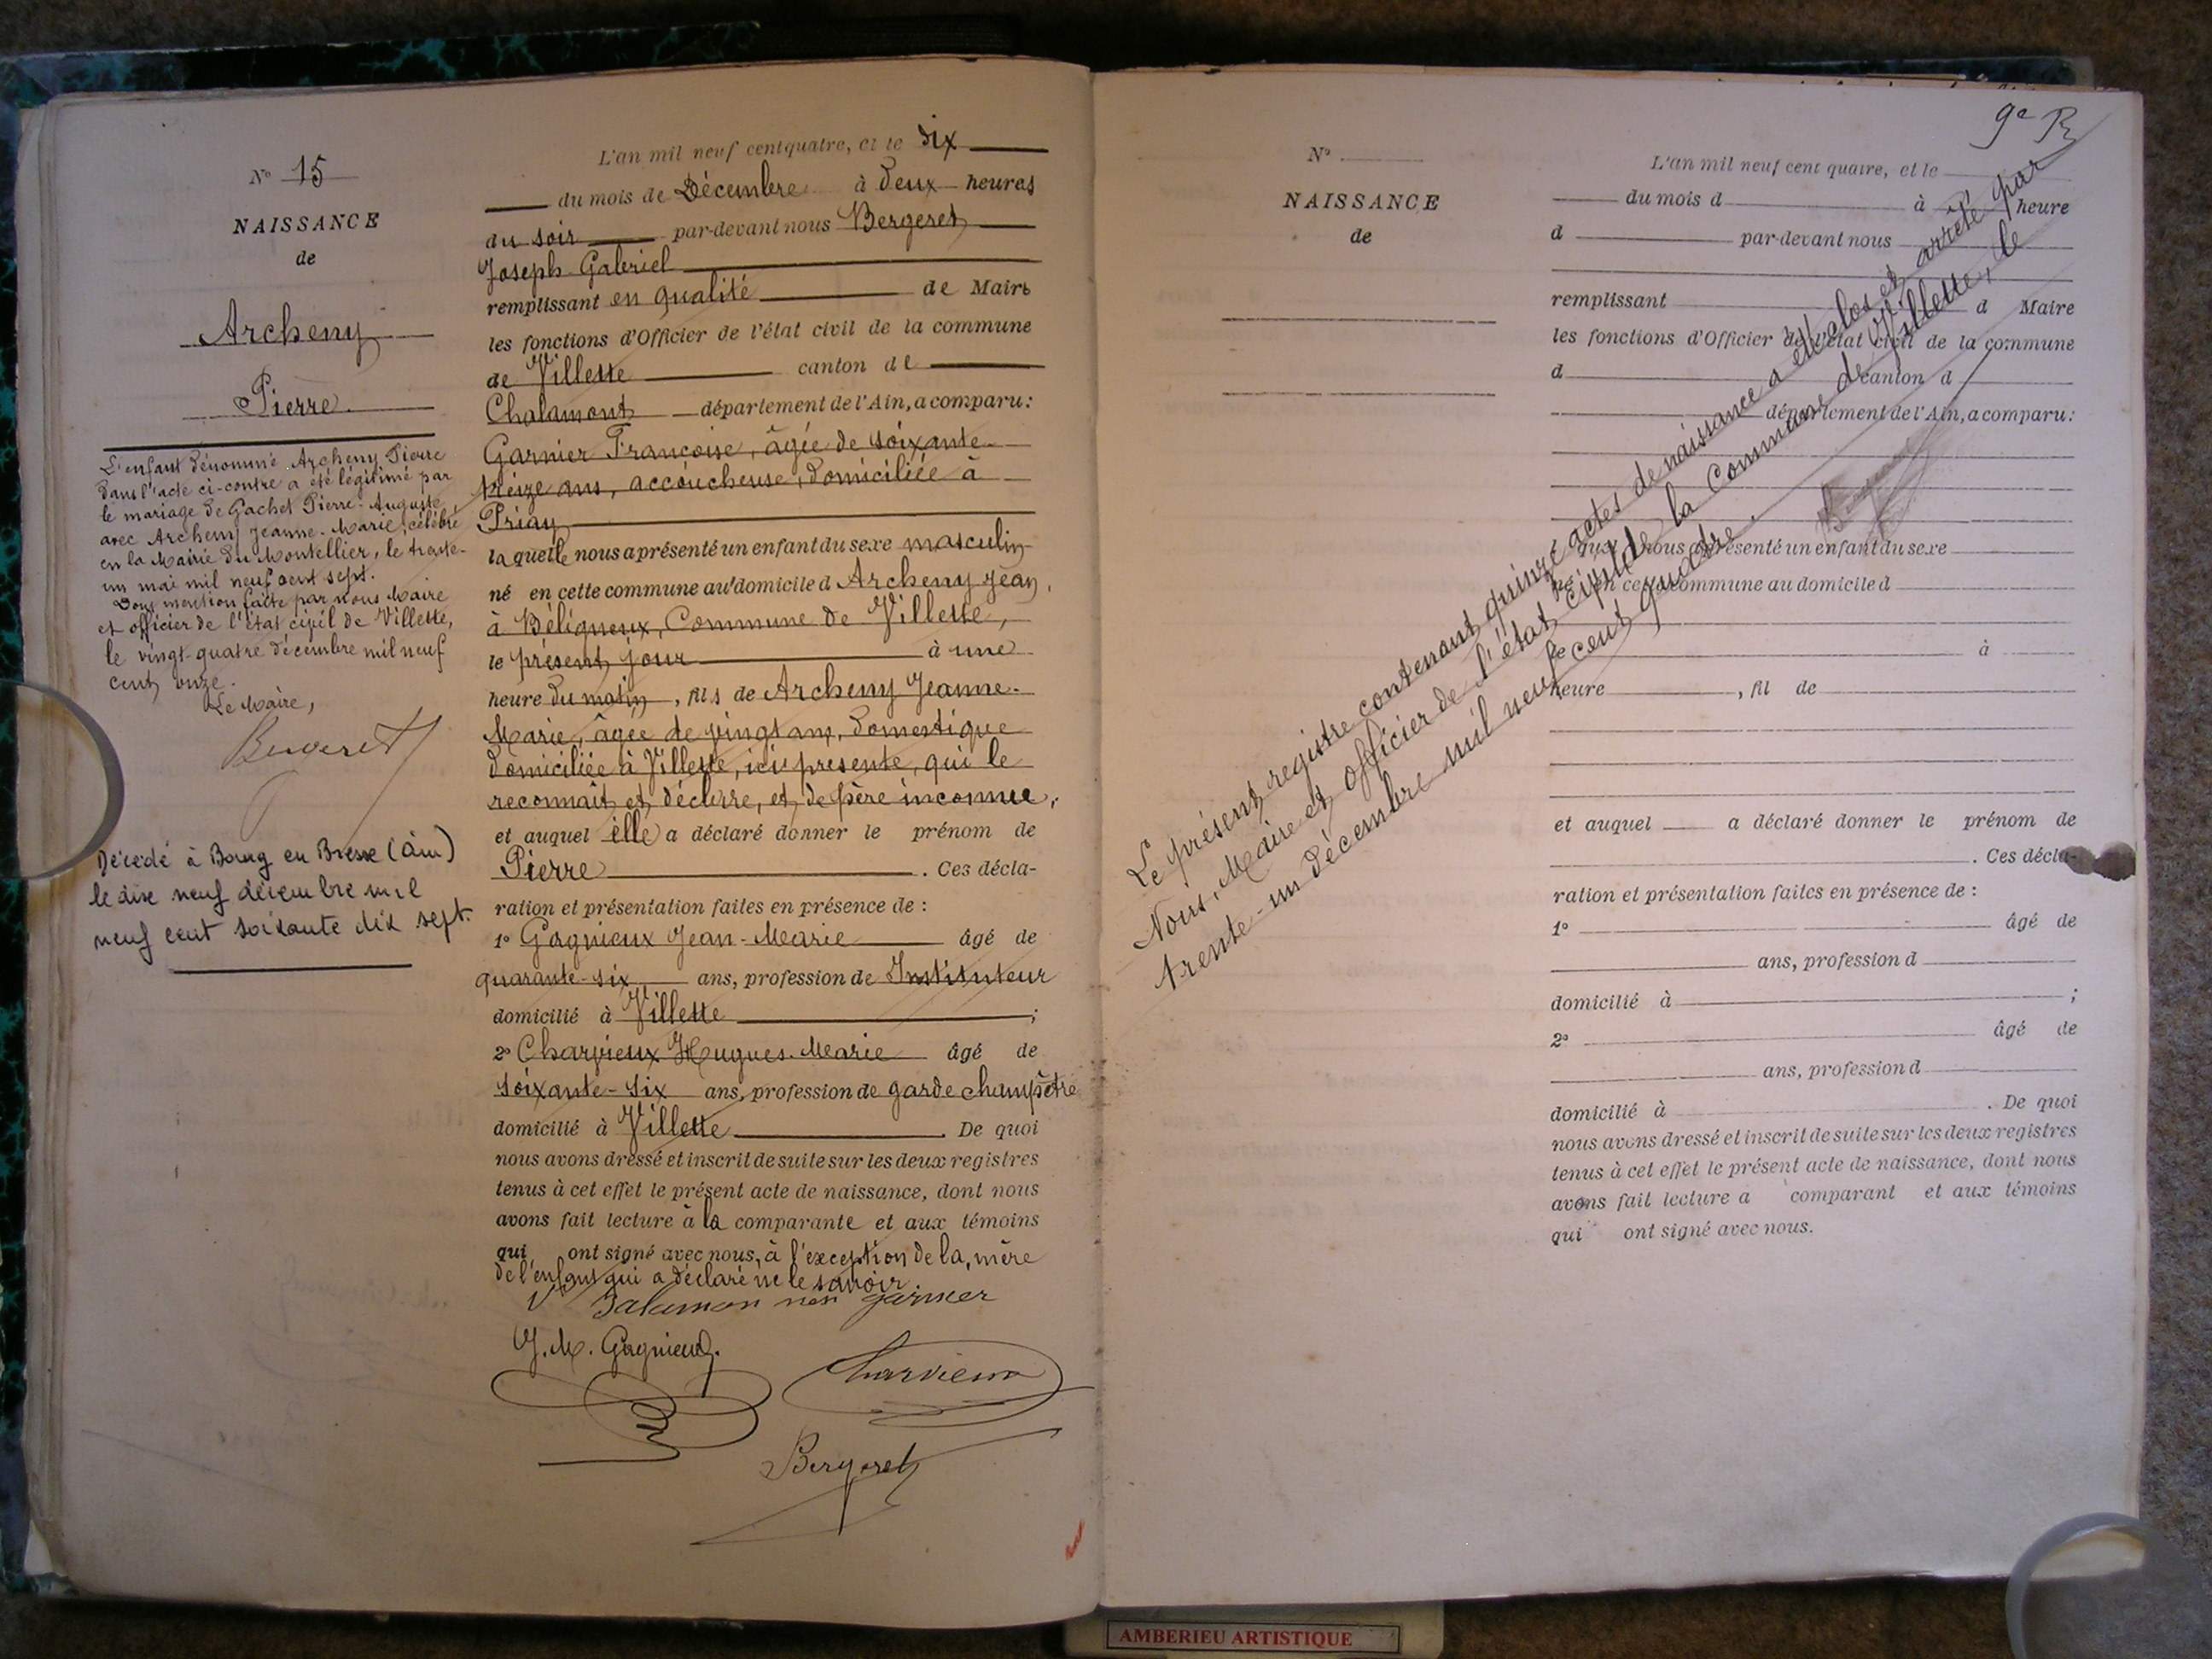 N° 15
NAISSANCE
de
Archeny
Pierre
L'enfant dénommé Archeny Pierre
dans l'acte ci-contre a été légitimé par
le mariage de Gachet Pierre-Auguste
avec Archeny Jeanne-Marie, célébré
en la Mairie du Montellier, le trente-
un mai mil neuf cent sept.
Dont mention faite par nous Maire
et officier de l'état civil de Villette,
le vingt-quatre décembre mil neuf
cent onze.
Le Maire,
Bergeret
Décédé à Bourg en Bresse (Ain)
le dix neuf décembre mil
neuf cent soixante dix sept.
L'an mil neuf cent quatre, et le dix
du mois de Décembre à deux heures
du soir par-devant nous Bergeret
Joseph-Gabriel
remplissant en qualité de Maire
les fonctions d'Officier de l'état civil de la commune
de Villette canton de
Chalamont département de l'Ain, a comparu:
Garnier Françoise, âgée de soixante-
treize ans, accoucheuse, domiciliée à
Priay
laquelle nous a présenté un enfant du sexe masculin
né en cette commune au domicile d Archeny Jean,
à Béligneux, Commune de Villette,
le présent jour à une
heure du matin, fils de Archeny Jeanne-
Marie, âgée de vingt ans, domestique
domiciliée à Villette, ici présente, qui le
reconnaît et déclare, et de père inconnue,
et auquel elle a déclaré donner le prénom de
Pierre . Ces décla-
ration et présentation faites en présence de :
1° Gagnieux Jean-Marie âgé de
quarante-six ans, profession de Instituteur
domicilié à Villette ;
2° Charvieux Hugues-Marie âgé de
soixante-six ans, profession de garde champêtre
domicilié à Villette . De quoi
nous avons dressé et inscrit de suite sur les deux registres
tenus à cet effet le présent acte de naissance, dont nous
avons fait lecture à la comparante et aux témoins
qui ont signé avec nous, à l'exception de la mère
de l'enfant qui a déclaré ne le savoir.
Garnier
J. M. Gagnieux.
Charvieux
Bergeret
9e
N°
NAISSANCE
de
L'an mil neuf cent quatre, et le
du mois d à heure
d par-devant nous
remplissant d Maire
les fonctions d'Officier de l'état civil de la commune
d canton d
département de l'Ain, a comparu:
que nous a présenté un enfant du sexe
né en cette commune au domicile d
le à
heure , fil de
et auquel a déclaré donner le prénom de
. Ces décla-
ration et présentation faites en présence de :
1° âgé de
ans, profession d
domicilié à ;
2° âgé de
ans, profession d
domicilié à . De quoi
nous avons dressé et inscrit de suite sur les deux registres
tenus à cet effet le présent acte de naissance, dont nous
avons fait lecture a comparant et aux témoins
qui ont signé avec nous.
Le présent registre contenant quinze actes de naissance a été clos et arrêté par
Nous, Maire et officier de l'état civil de la Commune de Villette, le
trente-un décembre mil neuf cent quatre.
AMBERIEU ARTISTIQUE